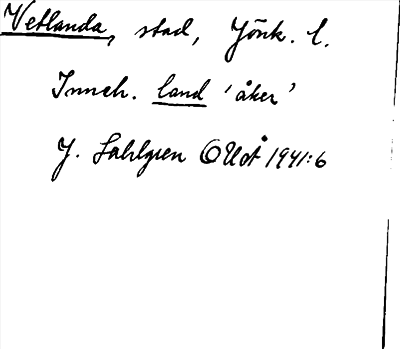 Vetlanda, stad, Jönk. l.
Inneh. land 'åker'
J. Sahlgren OUoÅ 1941:6